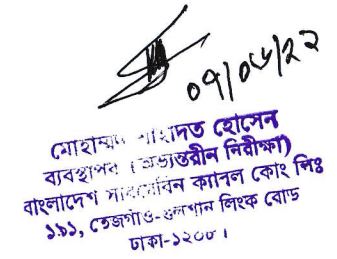 ০৭/০৬/২২
মোহাম্মদ শাহাদত হোসেন
ব্যবস্থাপক (অভ্যন্তরীন নিরীক্ষা)
বাংলাদেশ সাবমেরিন ক্যাবল কোং লিঃ
১৯১, তেজগাঁও-গুলশান লিংক রোড
ঢাকা-১২০৮।